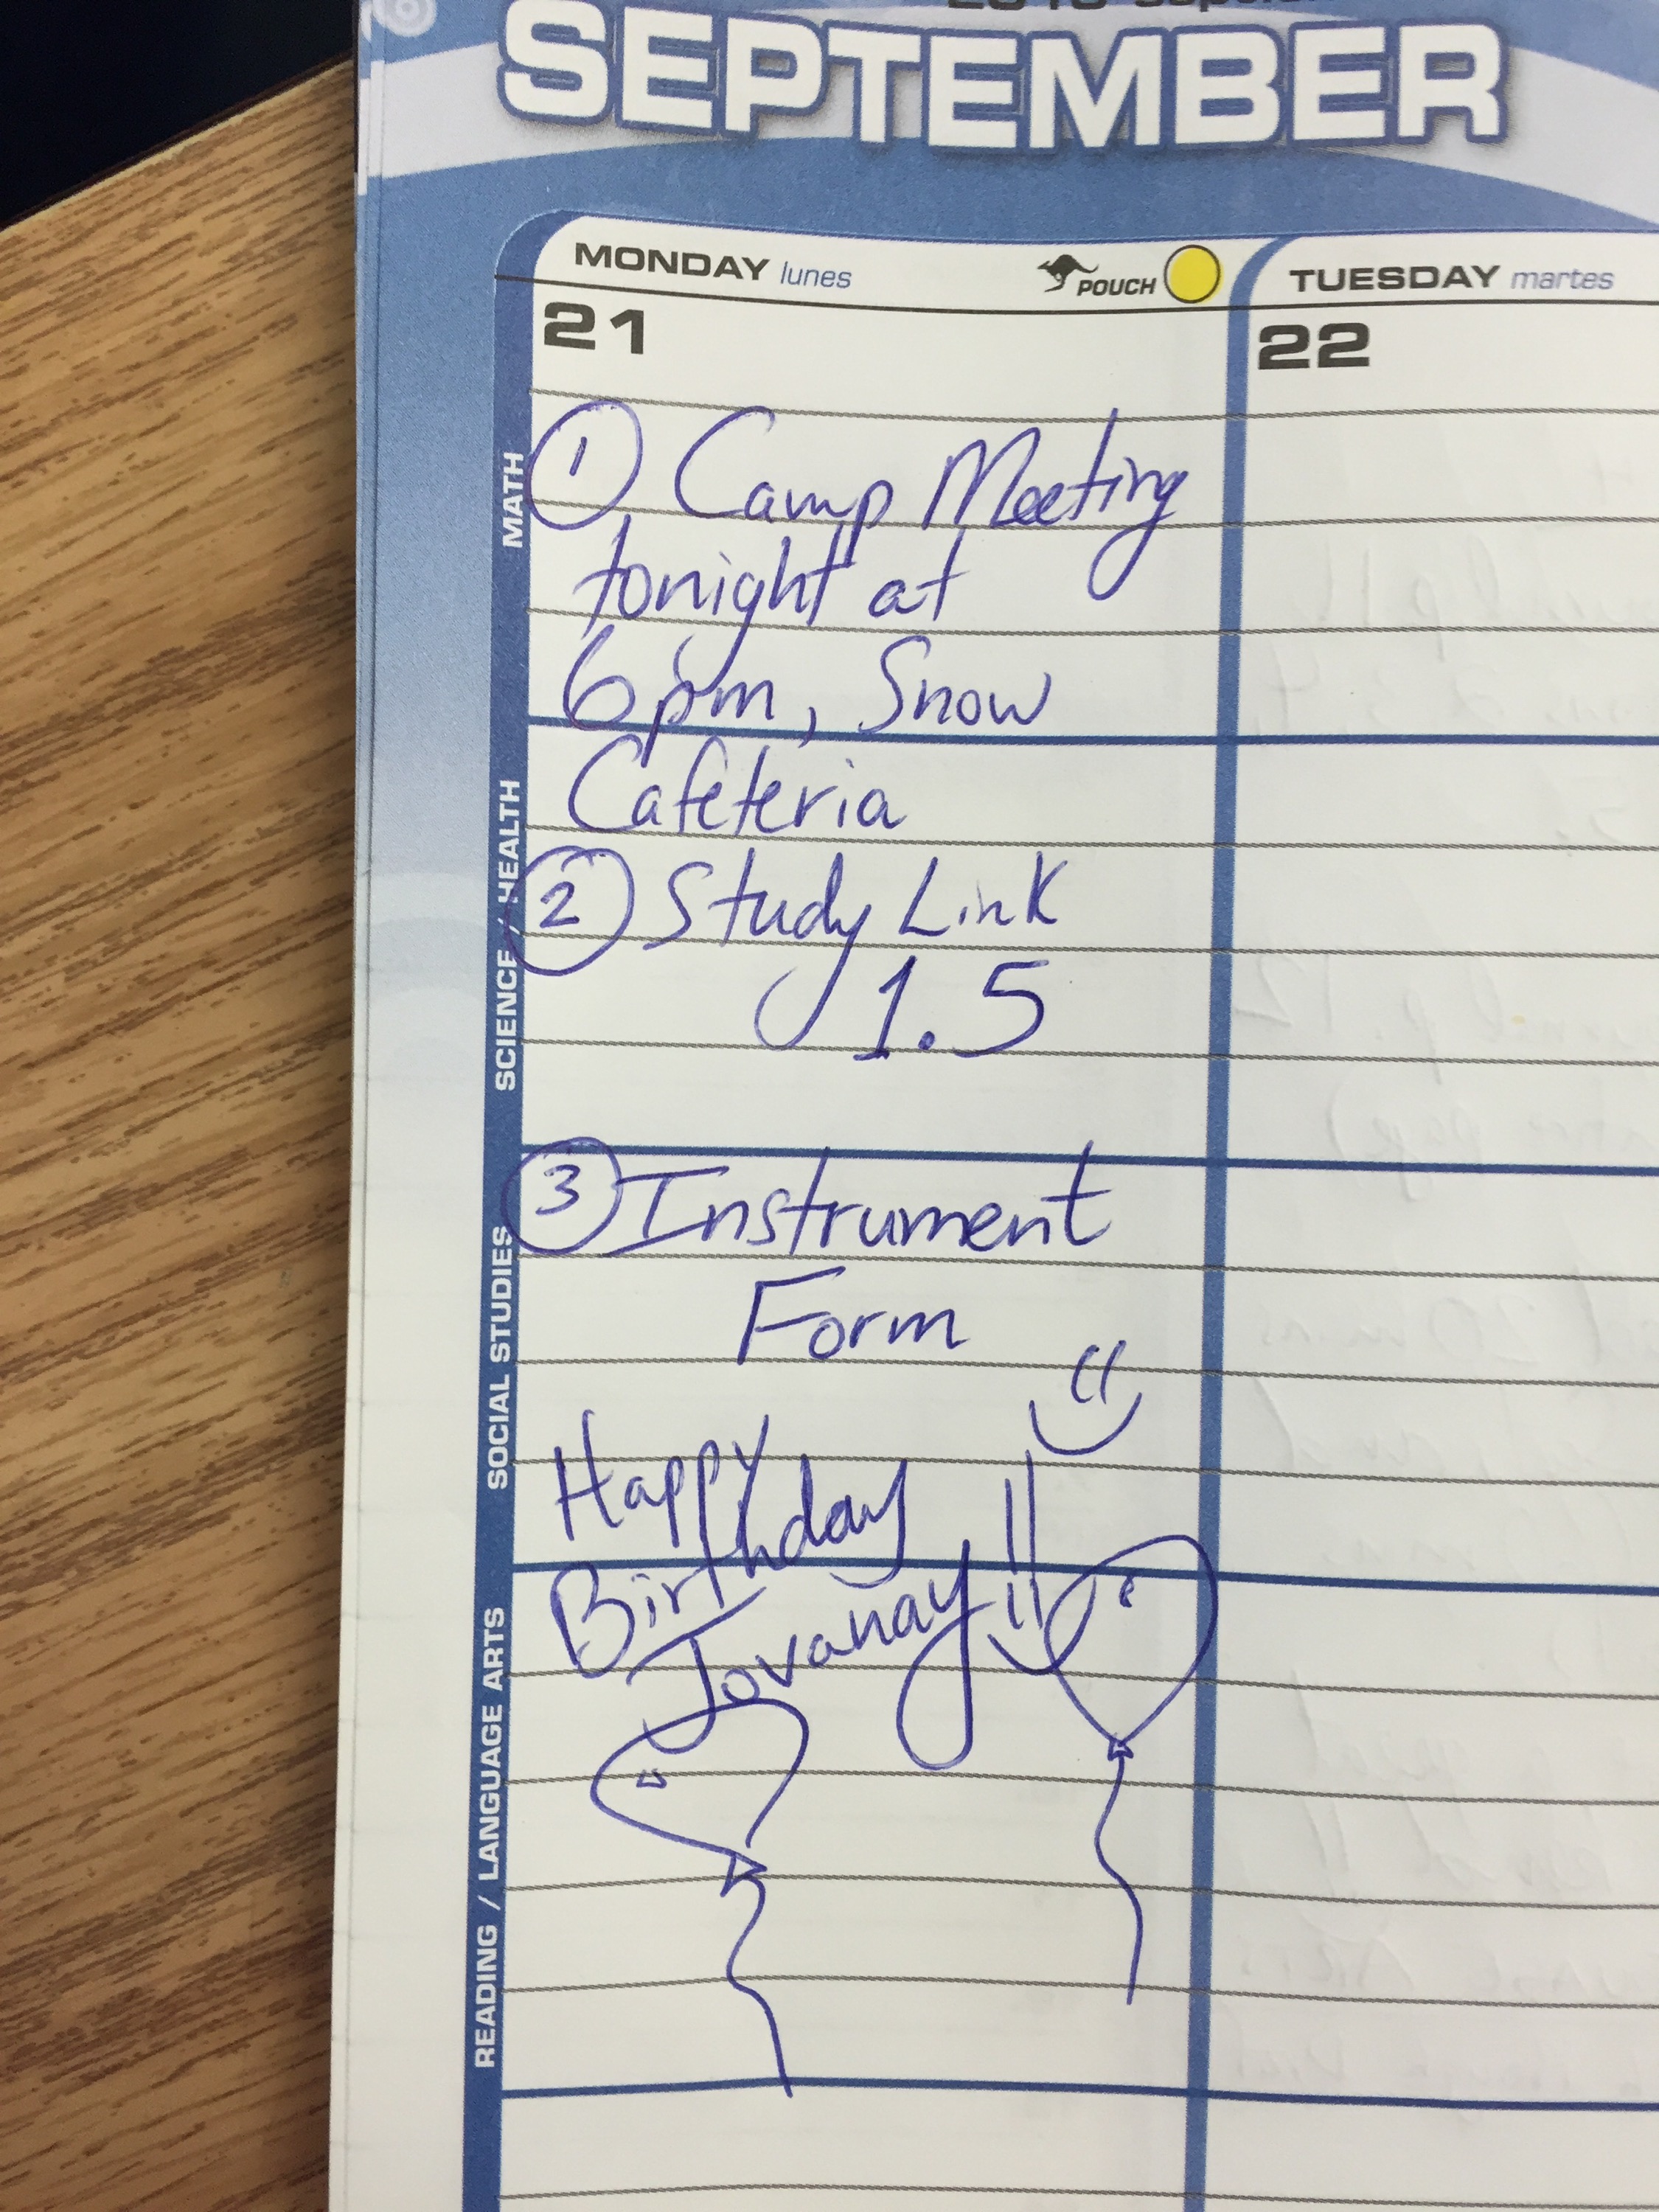 SEPTEMBER
MONDAY lunes POUCH
21
① Camp Meeting
tonight at
6pm, Snow
Cafeteria
② Study Link
1.5
③ Instrument
Form
Happy
Birthday
Jovanay!!
TUESDAY martes
22
MATH
SCIENCE / HEALTH
SOCIAL STUDIES
READING / LANGUAGE ARTS